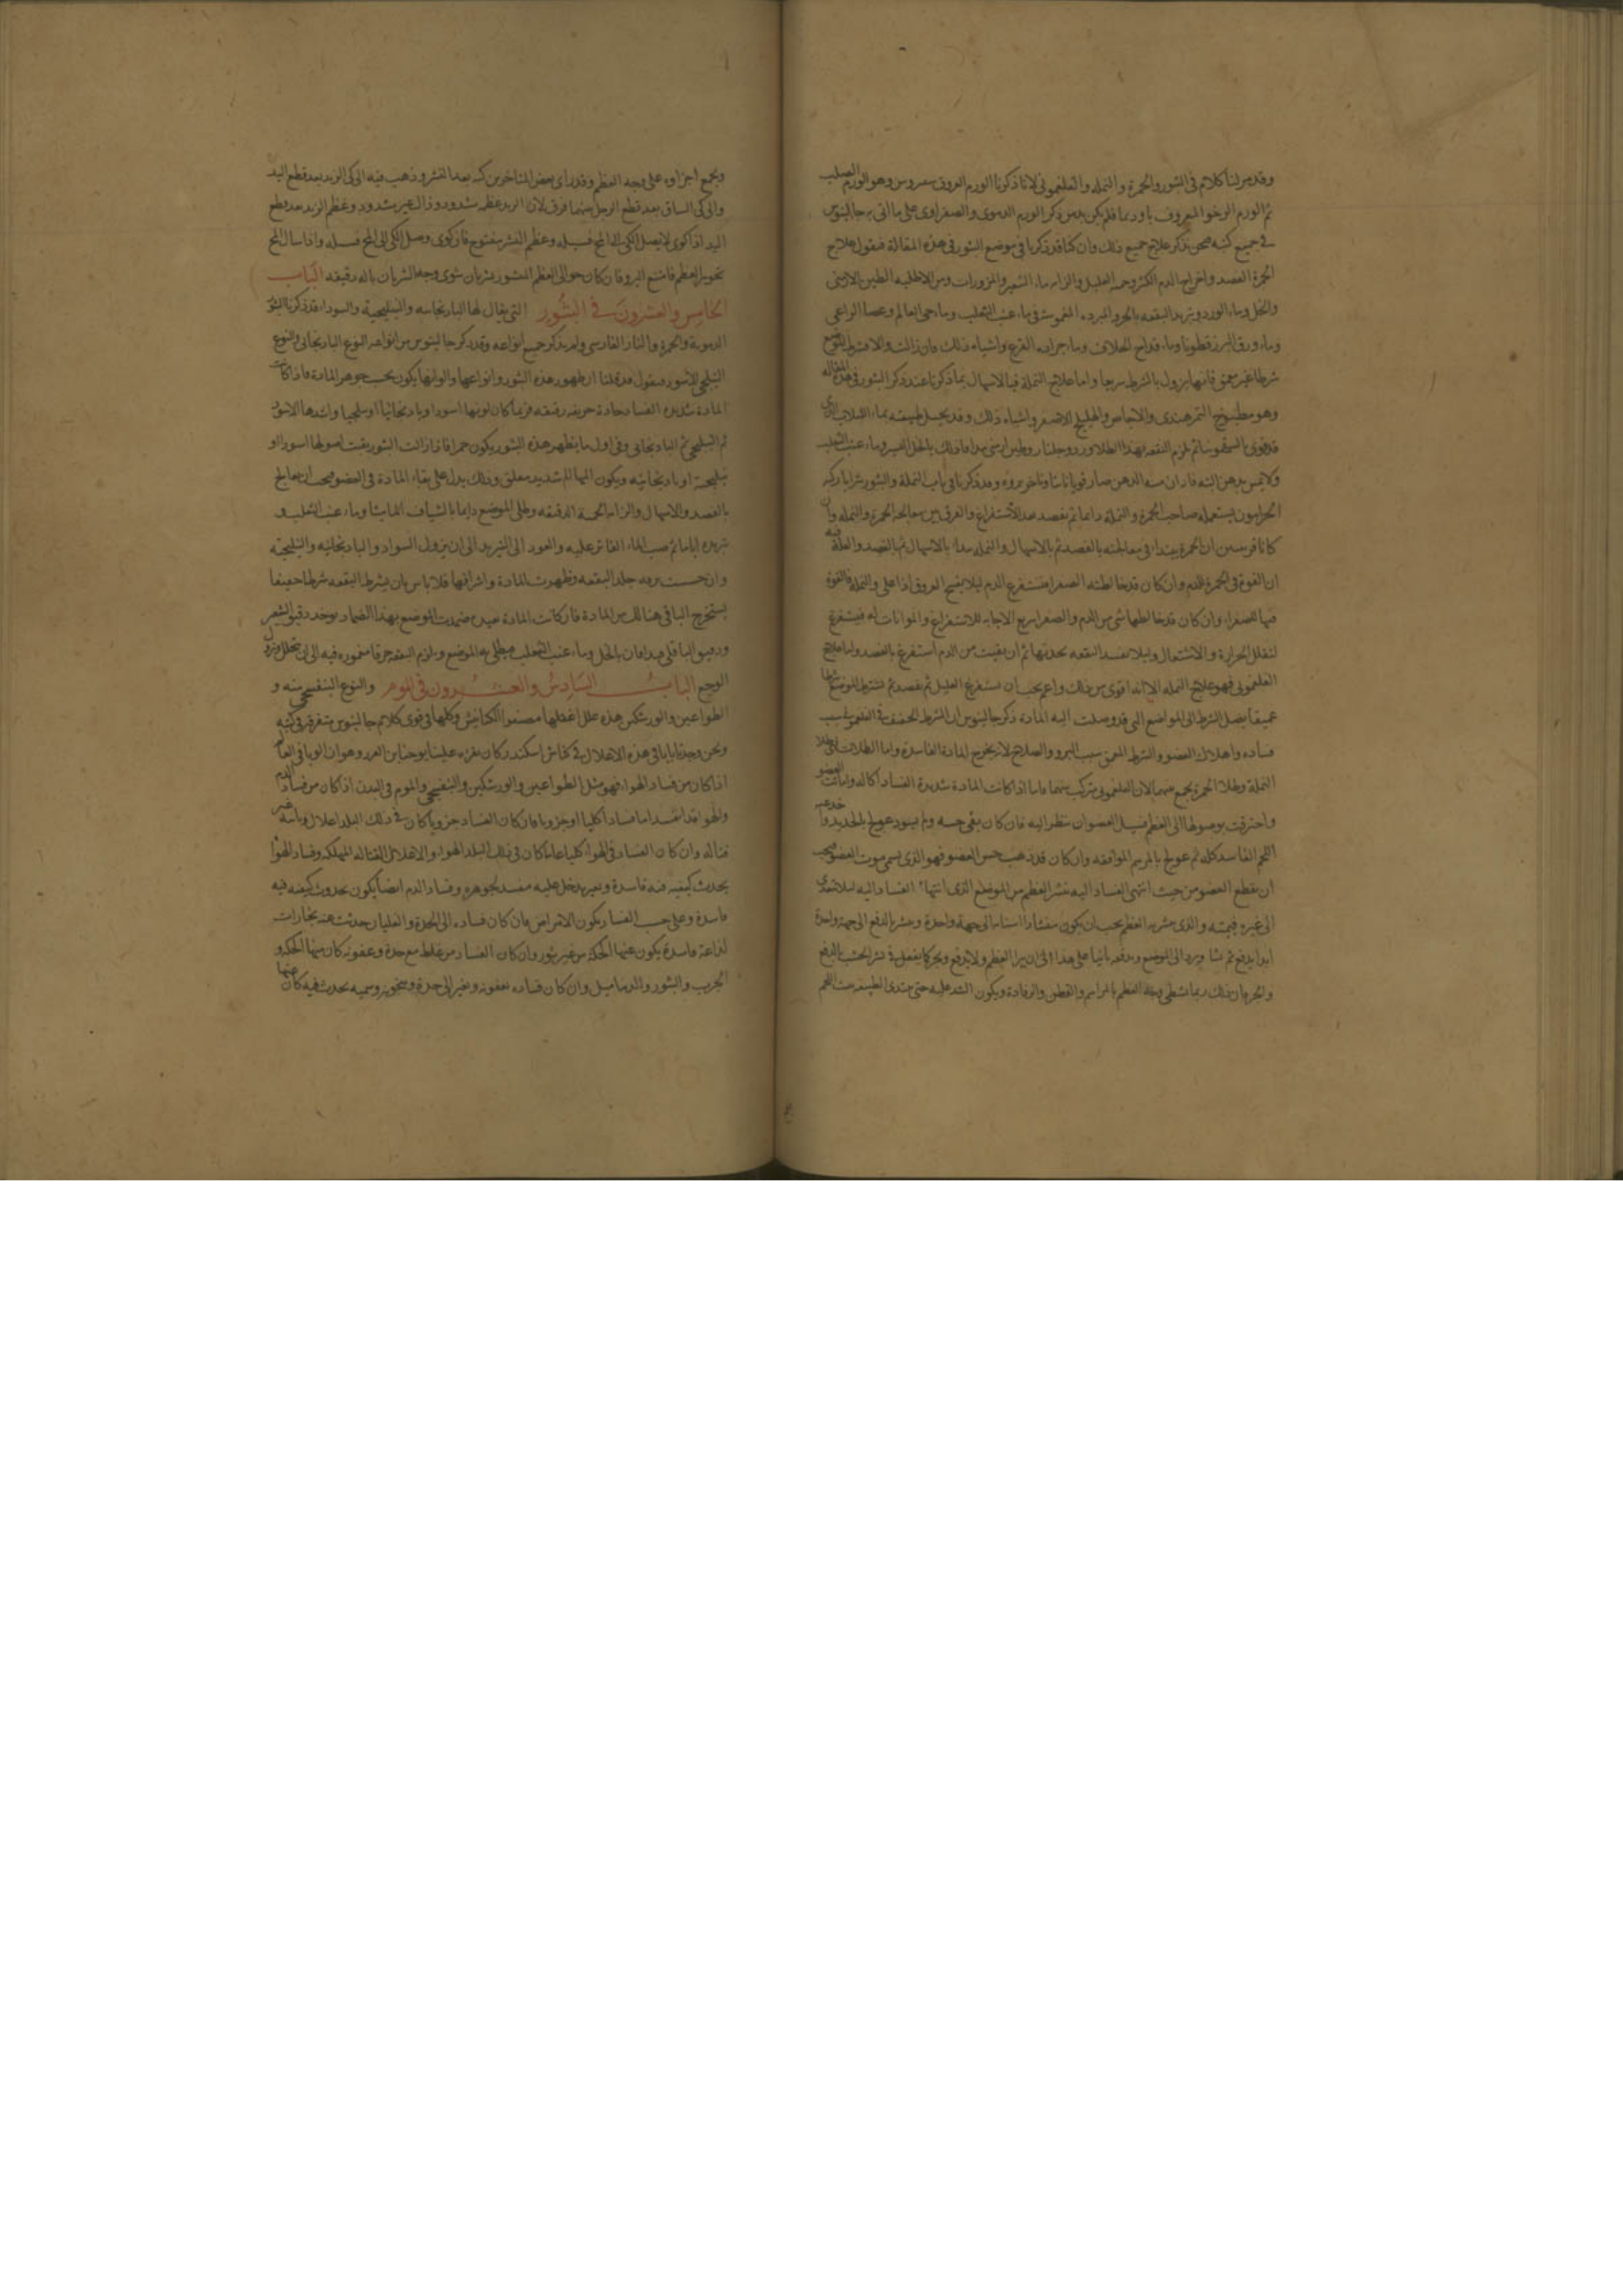 وقد مر لنا كلام في البثور والحمرة والنمله والفلغموني لانا ذكرنا الورم المعروف وهو الورم الصلب
ثم الورم الرخو المعروف باوديما فلم يكن بد من ذكر الورم الدموي والصفراوي على ما اتى به جالينوس
في جميع كتبه فنحن نذكر علاج جميع ذلك وان كنا قد ذكرنا في موضع البثور في هذه المقالة فنقول علاج
الحمرة الفصد واخراج الدم الكثير وحمية العليل والزامه ماء الشعير والمزورات ومن الاطليه الطين الارمني
والخل وماء الورد وتبريد البقعه بالخرق المبرده المغموسة في ماء عنب الثعلب وماء حي العالم وعصا الراعي
وماء ورق البزرقطونا وماء قداح الخلاف وماء جراده القرع واشباه ذلك فان زالت والا فشرط الموضع
شرطا غير معمق فانها يزول بالشرط سريعا واما علاج النملة فبالاسهال بما ذكرنا عند ذكر البثور في هذه المقاله
وهو مطبوخ التمر هندي والاجاص والهليلج الاصفر واشباه ذلك وقد يحل طبيعته بماء اللبلاب الذي
قد قوي بالسقمونيا ثم تلزم البقعه بهذا الطلا ورد وجلنار وطين ارمني يدافان ذلك بالخل اليسير وماء عنب الثعلب
ولا تمس بدهن البته فان مسه الدهن صار قوبا
الحرانيون يستعمله صاحب الحمرة والنملة دائما ثم يفصد بعد الاستفراغ والفرق بين معالجة الحمرة والنمله وان
كانا قريبين ان الحمرة يبتدا في معالجته بالفصد ثم بالاسهال والنمله يبدا بالاسهال ثم بالفصد والعلة فيه
ان القوة في الحمرة للدم وان كان قد خالطته الصفرا فنستفرغ الدم ليلا يفسخ العروق اذا غلى والنملة فالقوة
فيها للصفراء وان كان قد خالطها شي من الدم والصفرا سريع الاجابه للاستفراغ والمواتاة له فيستفرغ
لتقلل الحرارة والاشتعال وليلا تفسد البقعه بحدتها ثم ان بقيت من الدم استفرغ بالفصد واما علاج
الفلغموني فهو علاج النمله الا انه اقوى من ذلك واعم يجب ان يستفرغ العليل ثم يفصد ثم تشرط الموضع شرطا
عميقا يصل الشرط الى المواضع التي قد وصلت اليه المادة ذكر جالينوس ان الشرط الخفيف في الفلغموني سبب
فساده واهلاك العضو والشرط المعمق سبب البرو والصلاح لانه يخرج المادة الفاسدة واما الطلا فطلا
النملة وطلا الحمرة يجمع بينهما لان الفلغموني يتركب منهما فاما اذا كانت المادة شديدة الفساد اكاله واماتت العضو
واحترقت بوصولها الى العظم فسبيل العضو ان ينظر اليه فان كان بقي حسه ولم يسود عولج بالحديد واخذ عنه
اللحم الفاسد كله ثم عولج بالمراهم الموافقه وان كان قد ذهب حس العضو فهو الذي يسمى موت العضو فيجب
ان يقطع العضو من حيث انتهى الفساد اليه بنشر العظم من الموضع الذي انتهاء الفساد اليه ليلا يتعدى
الى غيره فيميته والذي ينشر به العظم يجب ان يكون منشارا اسنانه الى جهة واحدة وينشر بالدفع الى جهة واحدة
ابدا يدفع ثم يشال ويرد الى الموضع ويدفع ثانيا على هذا الى ان يبرا العظم ولا يدفع ويجر كما يفعل في نشر الخشب بالدفع
والجر فان ذلك ربما تشظى وجه العظم بالمراهم والقطن والرفادة ويكون الشد عليه حتى يبتدي الطبيعة تنبت اللحم
ويجمع اجزاوه على وجه العظم وقد راى بعض المتاخرين كيه بعد النشر وذهب فيه الى كي الزند بعد قطع اليد
والى كي الساق بعد قطع الرجل وبينهما فرق لان الزند عظمه مسدود وذاك غير مسدود وعظم الزند بعد قطع
اليد اذا كوى لا يصل الكي الى المخ فسيله وعظم النشر مفتوح فان كوى وصل الكي الى المخ فسيله واذا سال المخ
تجويف العظم فامتنع البرو فان كان حوالي العظم المنشور شريان شوى وجه الشريان باله رقيقه الباب
الخامس والعشرون في البثور التي يقال لها الباذنجانيه والبنفسجية والسوداء قد ذكرنا البثور
الدموية والحمرة والنار الفارسي ولم يذكر جميع انواعه وقد ذكر جالينوس من انواعه النوع الباذنجاني والنوع
والاسود فنقول قد قلنا ان ظهور هذه البثور وانواعها والوانها يكون بحسب جوهر المادة فاذا كانت
المادة شديدة الفساد حادة حريفه رقيقه فربما كان لونها اسود او باذنجانيا او واشدها الاسود
ثم ثم الباذنجاني وفي اول ما يظهر هذه البثور يكون حمرا فاذا زالت البثور بقيت اصولها اسودا او
او باذنجانيه ويكون المها الم شديد مقلق وذلك يدل على بقاء المادة في العضو فيجب ان يعالج
بالفصد والاسهال والزامه الحمية الدقيقه وطلي الموضع دايما بالشياف الماميثا وماء عنب الثعلب و
تبريده اياما ثم صب الماء الفاتر عليه والعود الى التبريد الى ان يزول السواد والباذنجانيه
وان حسست ببرد جلد البقعه وظهرت المادة واشرافها فلا باس بان يشرط البقعه شرطا خفيفا
يستخرج الباقي هنالك من المادة فان كانت المادة ضمدت الموضع بهذا الضماد يوخذ دقيق الشعير
ودقيق الباقلي يدافان بالخل وماء عنب الثعلب فيطلى به الموضع ويلزم البقعه خرقا مغموره فيه الى ان يتحلل ويزول
الوجع الباب السادس والعشرون في الموم والنوع البنفسجي منه و
الطواعين والورشكين هذه علل اغفلها مصنفوا الكنانيش وكلها في قوى كلام جالينوس متفرقه في كتبه
ونحن وجدنا بابا في هذه الاعلال في كناش اسكندر كان يقره علينا يوحنا وهو ان الوبا في العالم
اذا كان من فساد الهواء فهو مثل الطواعين والورشكين والبنفسجي والموم في البدن اذا كان من فساد الدم
والهوا قد يفسد اما فسادا كليا او جزويا فان كان الفساد جزويا كان في ذلك البلد اعلال وبائية غير
قتاله وان كان الفساد في الهوا كليا عاما كان في ذلك البلد الهواء والاعلال القتاله المهلكه وفساد الهوا
يحدث كيفيه فيه فاسدة وتغير يدخل عليه مفسد لجوهره وفساد الدم ايضا يكون بحدوث كيفيه فيه
فاسدة وعلى حسب الفساد يكون الامراض فان كان فساده الى الحدة والغليان حدثت عنه بخارات
لذاعة فاسدة يكون عنها الحكة من غير بثور وان كان الفساد من غلظ مع حدة وعفونه كان منها الحكه و
الجرب والبثور والدماميل وان كان فساده بعفونه وتغير الى حدة وسخونه وسميه يحدث فيه كان عنها